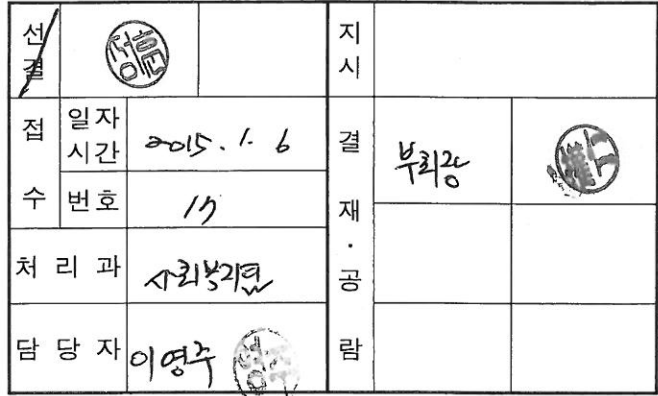 선결
지시
접수
일자
시간
2015. 1. 6
번호
17
결재·공람
부회장
처리과
사회복지팀
담당자
이영주